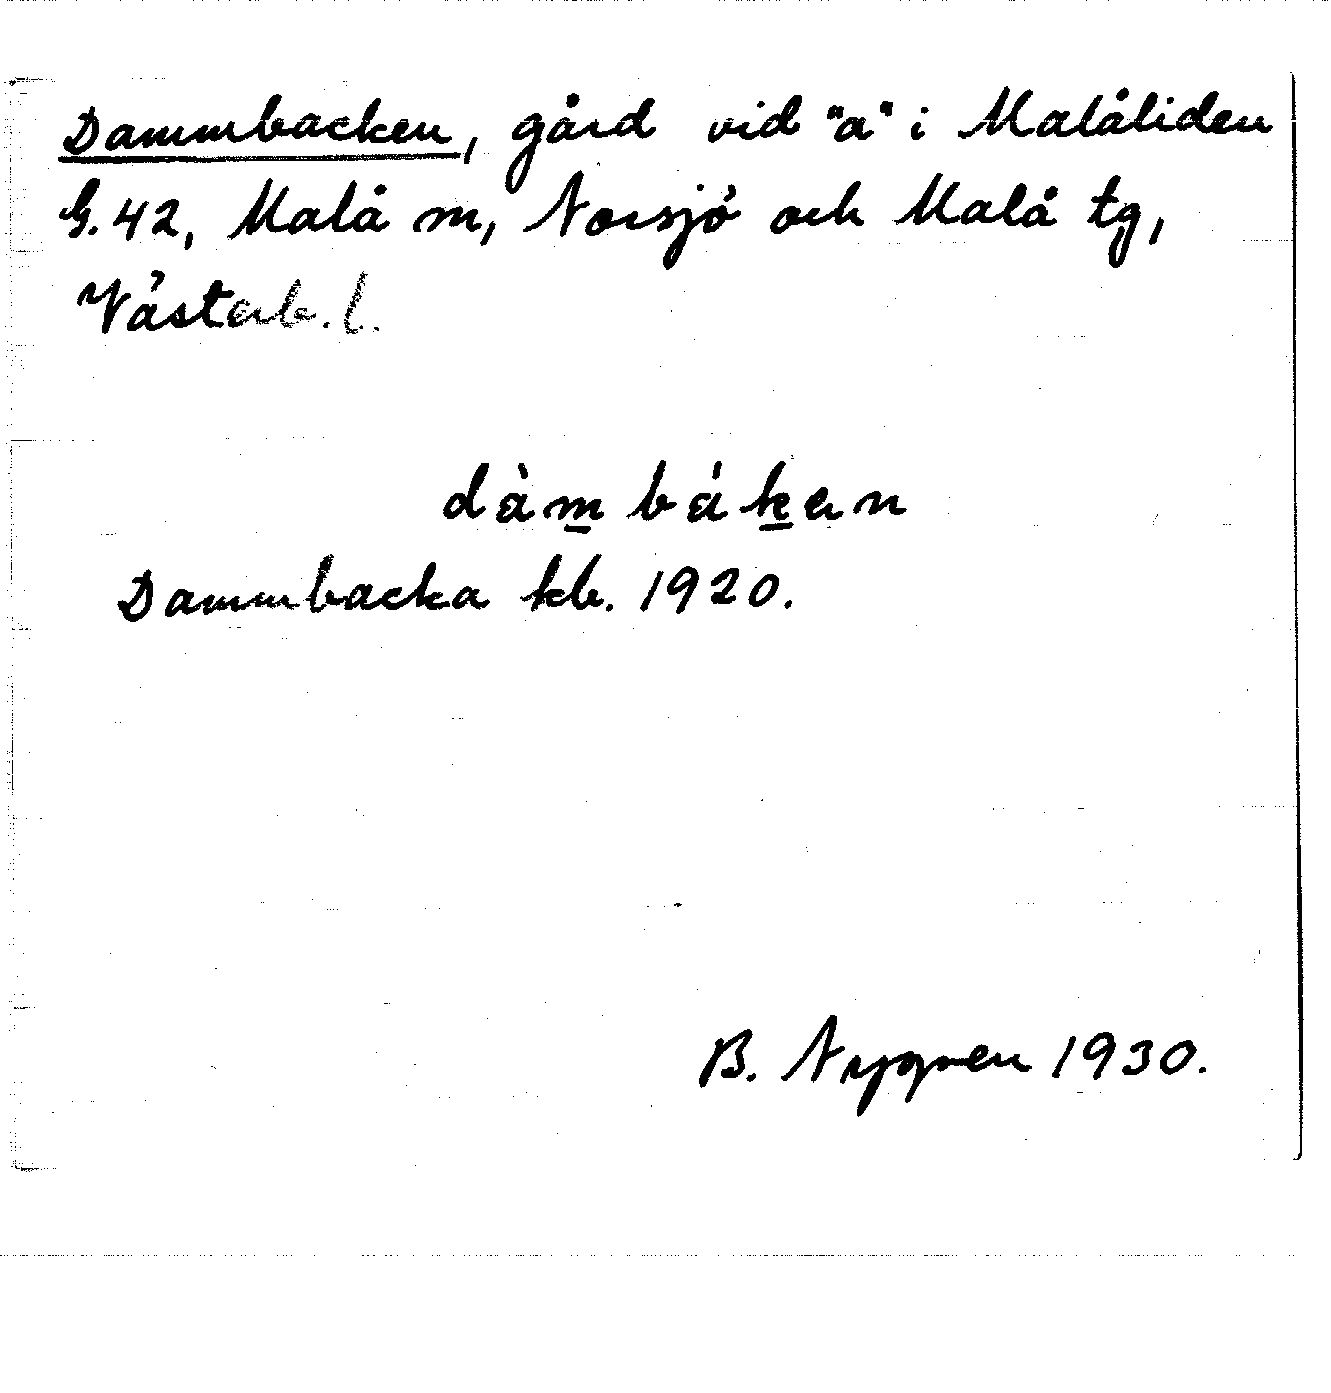 Dammbacken, gård vid "a" i Malåliden
G. 42, Malå m, Norsjö och Malå tg,
Västerb. l.
dàm̲bák̲en
Dammbacka kb. 1920.
B. Nygren 1930.